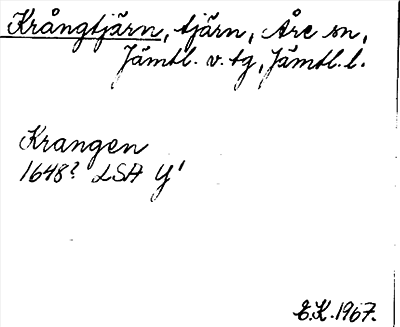 Krångtjärn, tjärn, Åre sn,
Jämtl. v. tg, Jämtl. l.
Krangen
1648? LSA Y¹
E.K. 1967.